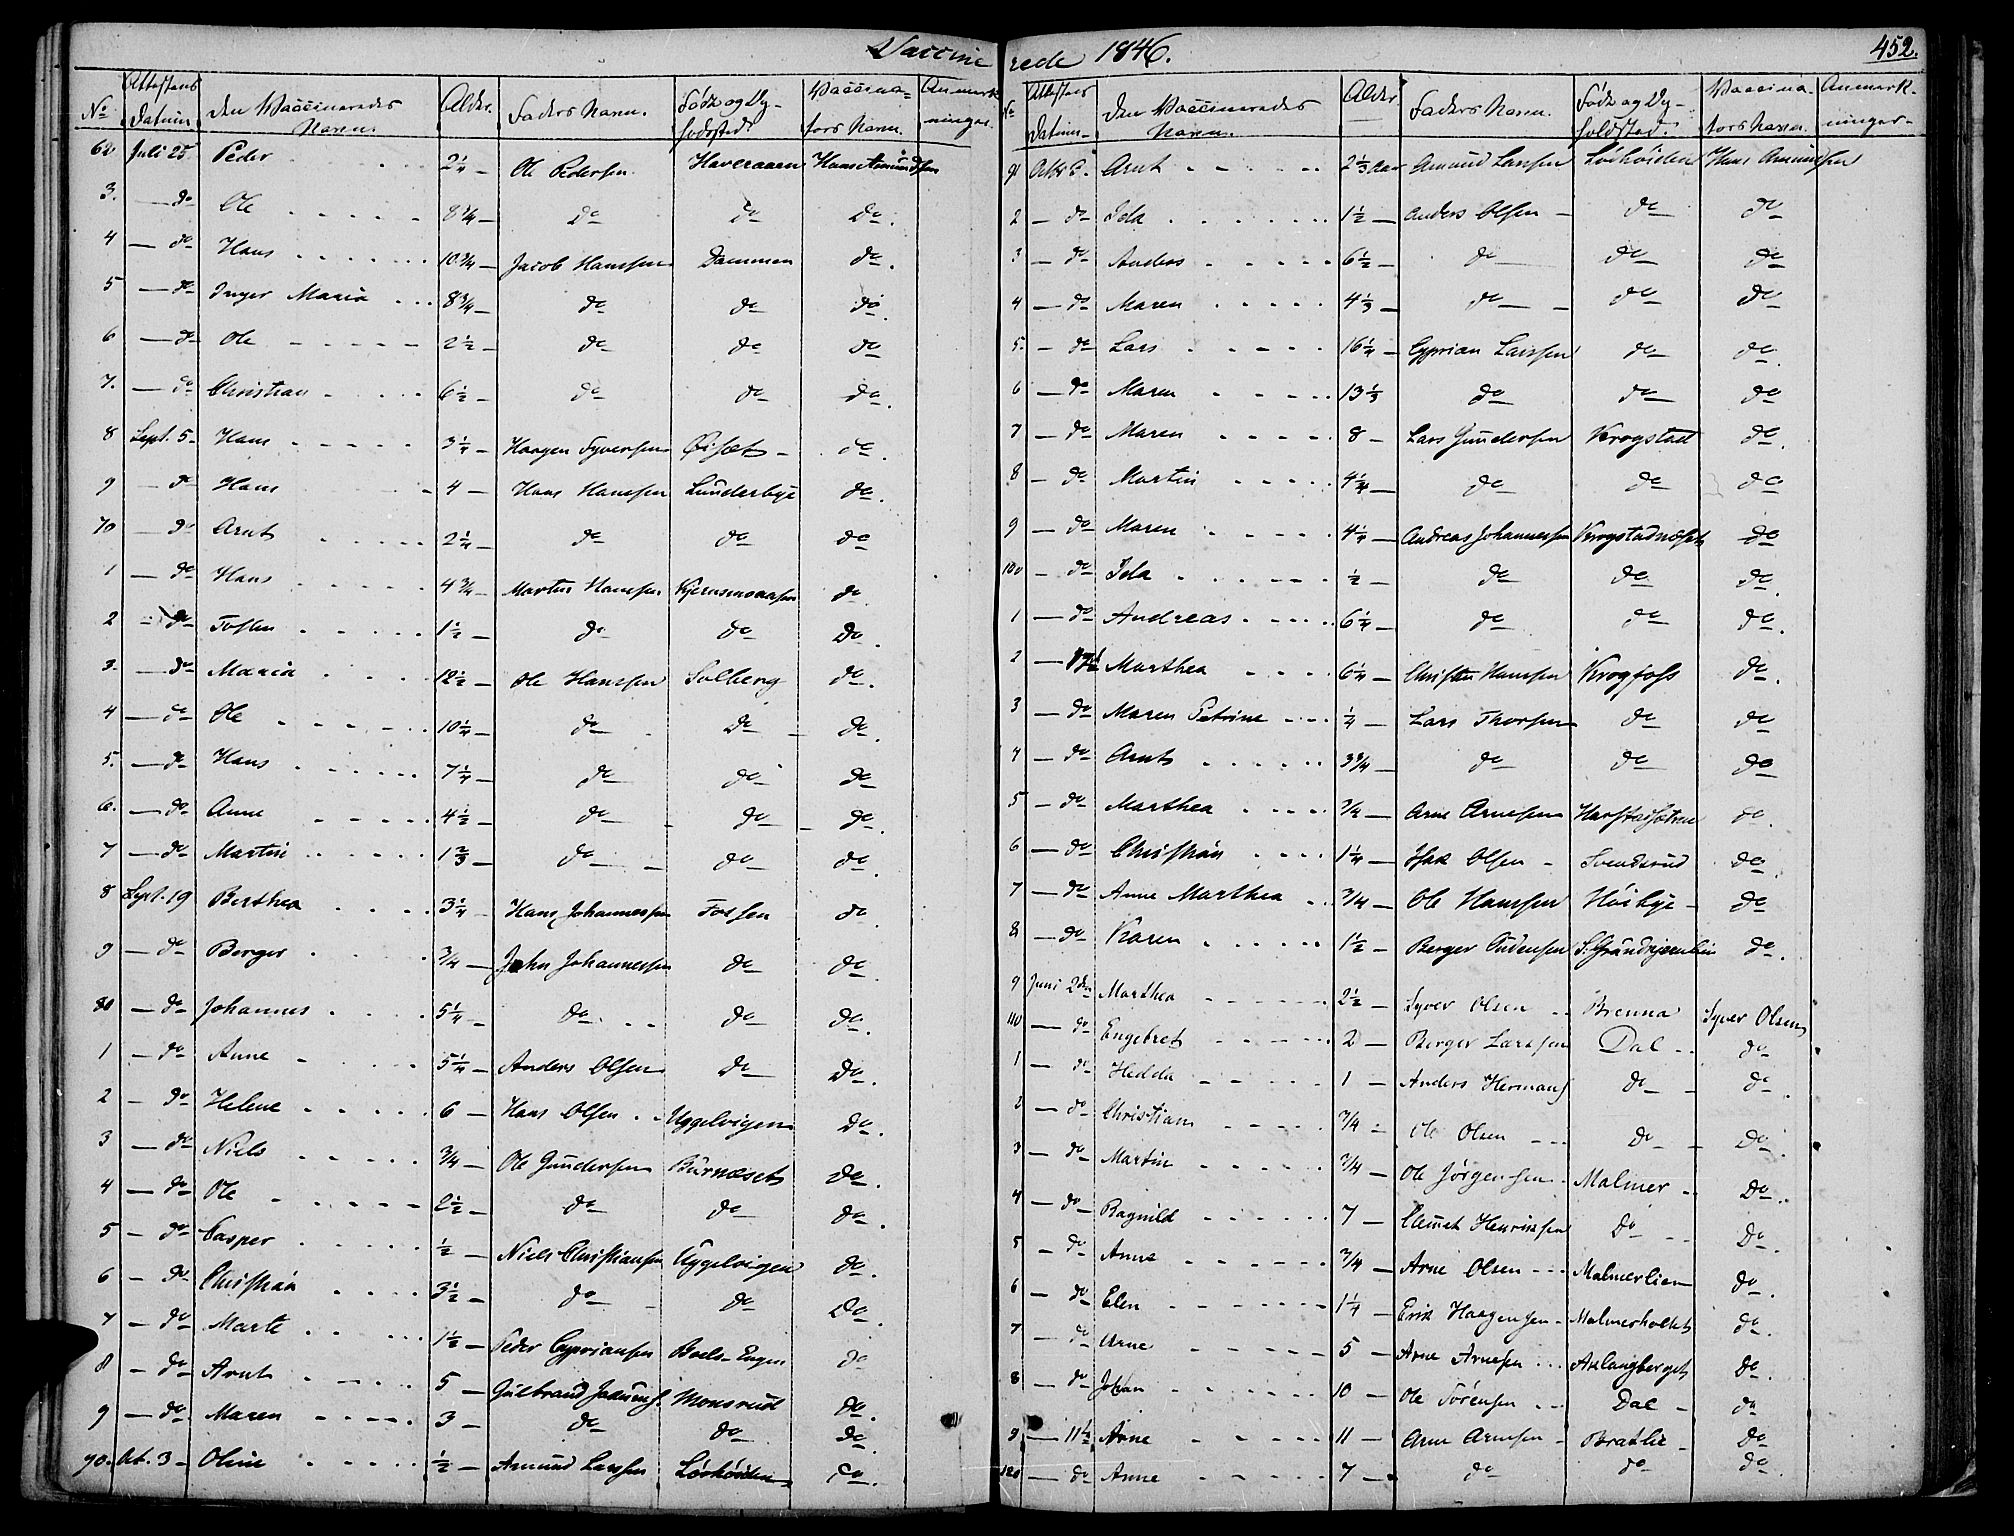 Vaccinerede 1846.
452.
No | Attestens Datum | Den Vaccineredes Navn. | Alder. | Faders Navn. | Føde og Opholdsted | Vaccinators Navn. | Anmærkninger.
62 | Juli 25 | Peder | 2 1/4 | Ole Pedersen | Haveraaen | Hans Amundsen
3. | do | Ole | 8 3/4 | do | do | do
4 | do | Hans | 10 3/4 | Jacob Hanssen | Dammen | do
5 | do | Inger Maria | 8 3/4 | do | do | do
6 | do | Ole | 2 1/2 | do | do | do
7. | do | Christian | 6 1/2 | do | do | do
8 | Sept. 5 | Hans | 3 1/4 | Haagen Syversen | Øiset | do
9 | do | Hans | 4 | Hans Hanssen | Lunderbye | do
70 | do | Arnt | 2 1/4 | do | do | do
1 | do | Hans | 4 3/4 | Martin Hanssen | Kjernsmoaasen | do
2 | do | Tosten | 1 1/2 | do | do | do
3. | do | Maria | 12 1/2 | Ole Hanssen | Solberg | do
4 | do | Ole | 10 1/4 | do | do | do
5. | do | Hans | 7 1/4 | do | do | do
6. | do | Anne | 4 1/2 | do | do | do
7 | do | Martin | 1 2/3 | do | do | do
8 | Sept. 19 | Berthea | 3 1/4 | Hans Johannessen | Fossen | do
9 | do | Berger | 3/4 | John Johannessen | do | do
80 | do | Johannes | 5 1/4 | do | do | do
1 | do | Anne | 5 1/4 | Anders Olsen | do | do
2 | do | Helene | 6 | Hans Olsen | Uggelvigen | do
3 | do | Niels | 3/4 | Ole Gundersen | Burnæset | do
4 | do | Ole | 2 1/2 | do | do | do
5 | do | Casper | 1/2 | Niels Christiansen | Uggelvigen | do
6 | do | Christian | 3 1/2 | do | do | do
7 | do | Marte | 1 1/2 | Peder Cypriansen | Boels-Engen | do
8 | do | Arnt | 5 | Gulbrand | Monsrud | do
9 | do | Maren | 3 | do | do | do
90. | Oct. 3 | Oline | 1/2 | Amund Larssen | Lørhøiden | do
No | Attestens Datum | Den Vaccineredes Navn. | Alder | Faders Navn. | Føde og Opholdsted. | Vaccinators Navn. | Anmærkninger.
91 | Octbr 6. | Arnt | 2 1/3 Aar | Amund Larssen | Lørhøiden | Hans Amundsen
2 | do | Ida | 1 1/2 | Anders Olsen | do | do
3 | do | Anders | 6 1/2 | do | do | do
4 | do | Maren | 4 1/3 | do | do | do
5. | do | Lars | 16 1/4 | Cyprian Larssen | do | do
6 | do | Maren | 13 1/3 | do | do | do
7 | do | Maren | 8 | Lars Gundersen | Krogstad | do
8 | do | Martin | 4 1/4 | do | do | do
9 | do | Maren | 4 1/4 | Andreas Johannessen | Krogstadnæset | do
100 | do | Ida | 1/2 | do | do | do
1 | do | Andreas | 6 1/4 | do | do | do
2 | 17 | Marthea | 6 1/4 | Christen Hanssen | Krogfoss | do
3 | do | Maren Petrine | 1/4 | Lars Thorsen | do | do
4 | do | Arnt | 3 3/4 | do | do | do
5 | do | Marthea | 3/4 | Arne Arnesen | Harstadsætren | do
6 | do | Christian | 1 1/4 | Isak Olsen | Svendsrud | do
7 | do | Anne Marthea | 3/4 | Ole Hanssen | Høibye | do
8 | do | Karen | 1 1/2 | Berger Audensen | | do
9 | Juni 2den | Marthea | 2 1/2 | Syver Olsen | Brenna | Syver Olsen
110 | do | Engebret | 2 | Berger Larssen | Dal | do
1 | do | Hedda | 1 | Anders Hermans | do | do
2 | do | Christian | 3/4 | Ole Olsen | do | do
3 | do | Martin | 3/4 | Ole Jørgensen | Malmer | do
4 | do | Ragnild | 7 | Clemet Henriksen | do | do
5 | do | Anne | 3/4 | Arne Olsen | Malmerlien | do
6 | do | Elen | 1 1/4 | Erik Haagensen | Malmerholtet | do
7 | do | Arne | 5 | Arne Arnesen | Aslangberget | do
8 | do | Johan | 10 | Ole Sørensen | Dal | do
9 | 11te | Arne | 11 | Arne Arnesen | Bratlie | do
120 | do | Anne | 7 | do | do | do